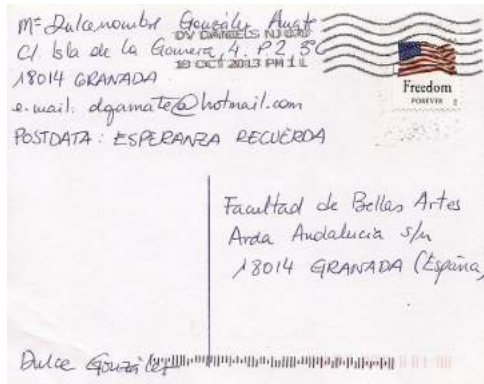 Mª Dulcenombre González Amate
C/. Isla de la Gomera, 4. P2, 3ºC
18014 GRANADA
e-mail: dgamate@hotmail.com
POSTDATA: ESPERANZA RECUERDA
DV DANIELS NJ 070
18 OCT 2013 PM 1 L
Freedom
FOREVER
Facultad de Bellas Artes
Avda Andalucia s/n
18014 GRANADA (España)
Dulce González